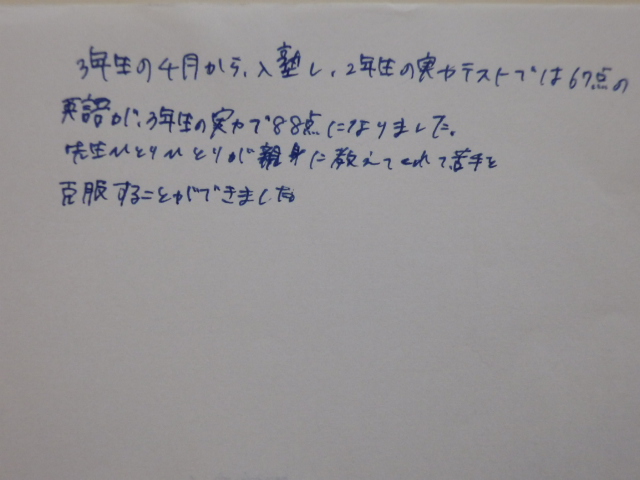 3年生の4月から、入塾し、2年生の実力テストでは67点の
英語が、3年生の実力で88点になりました。
先生ひとりひとりが親身に教えてくれて苦手を
克服することができました。